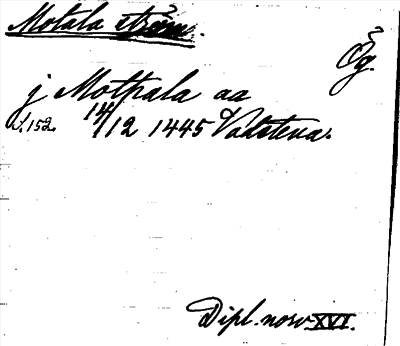 Motala ström.
Ög.
j Mothala aa
s. 152. 14/12 1445 Vatstena.
Dipl. norv XVI.